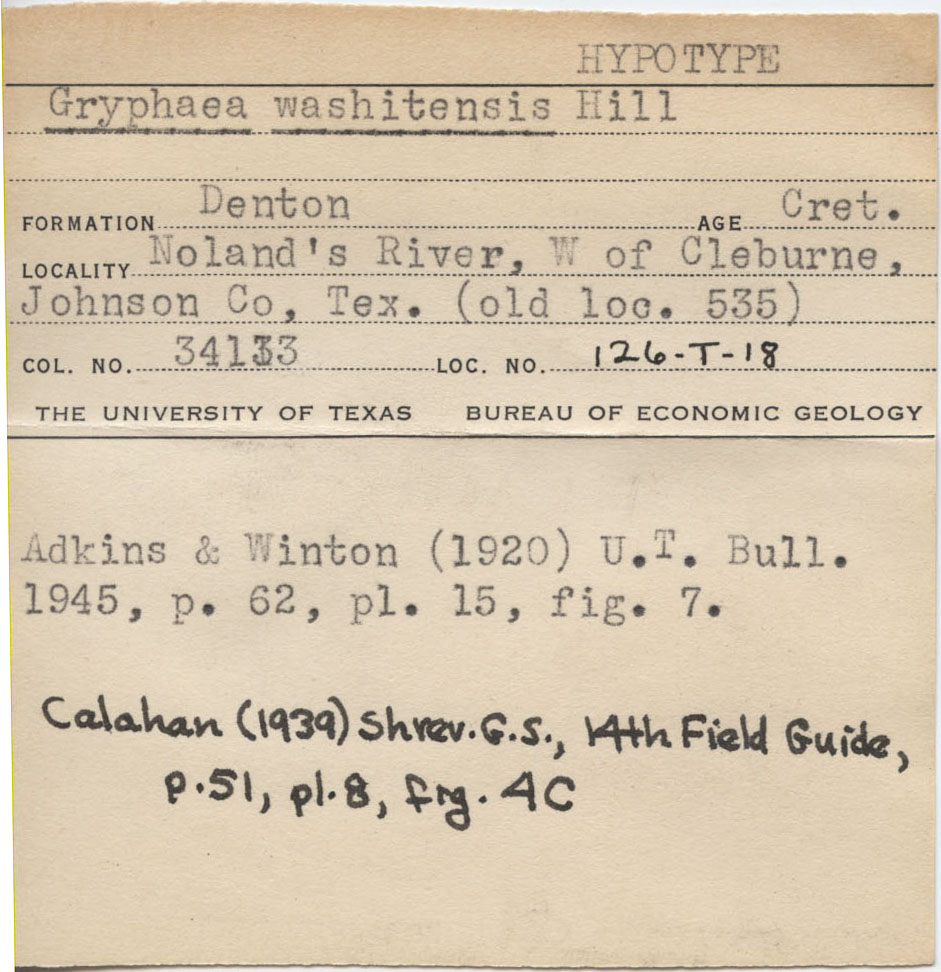 HYPOTYPE
Gryphaea washitensis Hill
FORMATION Denton AGE Cret.
LOCALITY Noland's River, W of Cleburne,
Johnson Co, Tex. (old loc. 535)
COL. NO. 34133 LOC. NO. 126-T-18
THE UNIVERSITY OF TEXAS BUREAU OF ECONOMIC GEOLOGY
Adkins & Winton (1920) U.T. Bull.
1945, p. 62, pl. 15, fig. 7.
Calahan (1939) Shrev. G.S., 14th Field Guide,
p.51, pl.8, fig. 4C